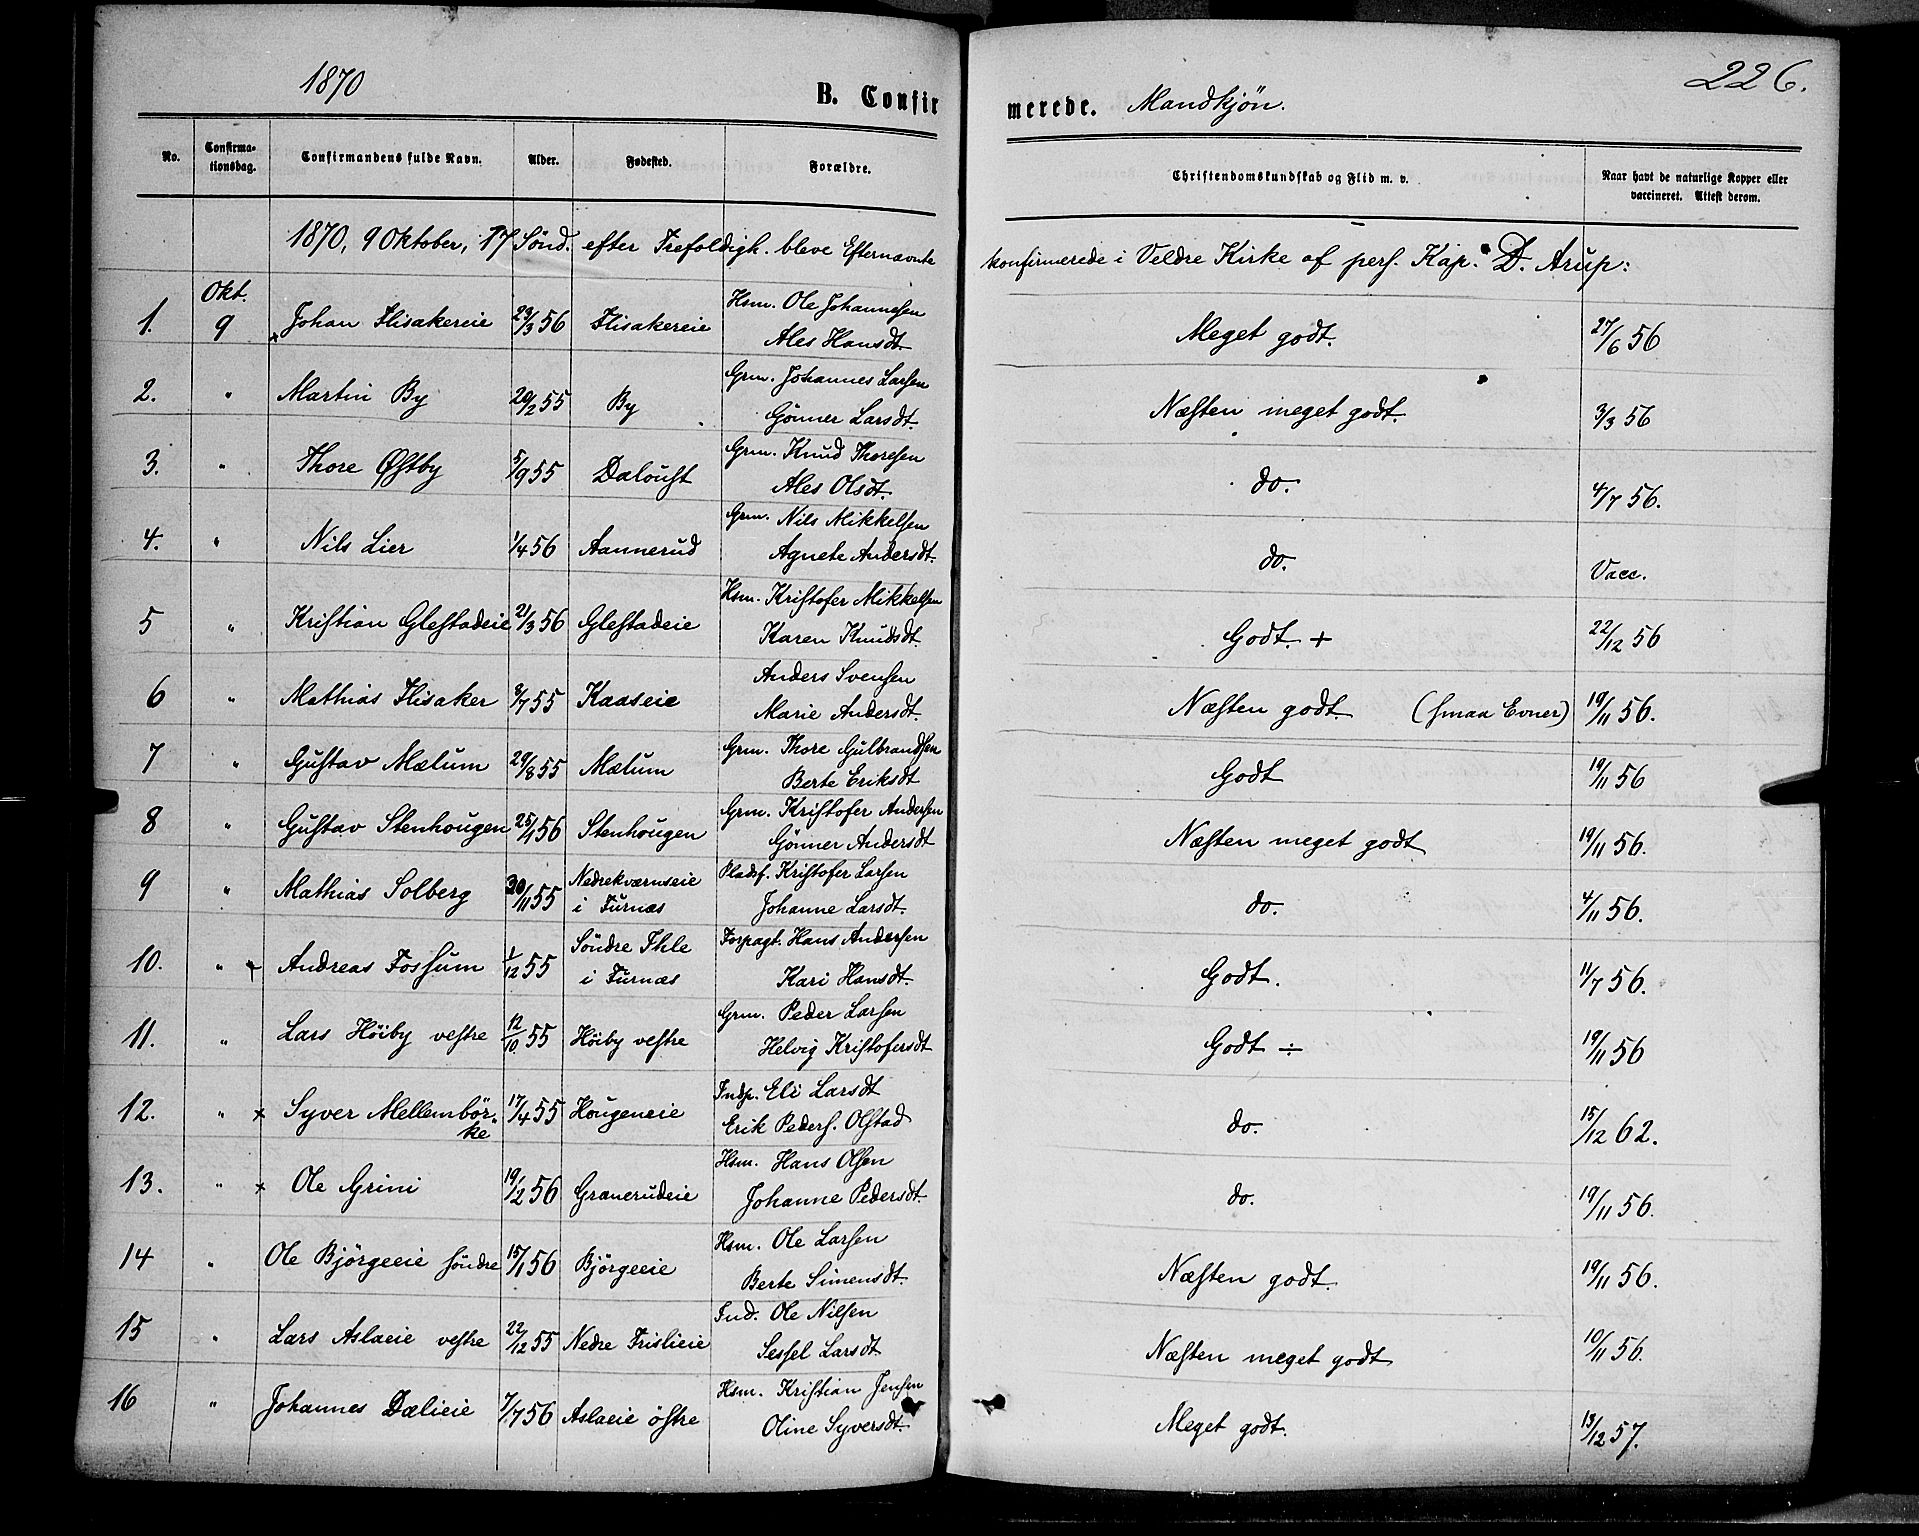 1870
B. Confirmerede. Mandkjön.
226.
No.
Confirmationsdag.
Confirmandens fulde Navn.
Alder.
Fødested.
Forældre.
Christendomskundskab og Flid m. v.
Naar havt de naturlige Kopper eller vaccineret. Attest derom.
1870, 9 Oktober, 17 Sönd. efter Trefoldigh. bleve Efternævnte konfirmerede i Veldre Kirke af pers. Kap. D. Arup:
1. Okt. 9 Johan Flisakereie 29/3 56 Flisakereie Hsm. Ole Johannesen Meget godt. 27/6 56
Ales Hansdt.
2. " Martin By 20/2 55 By Grm. Johannes Larsen Næsten meget godt. 3/3 56
Gönner Larsdt.
3. " Thore Østby 5/9 55 Daloust Grm. Knud Thoresen do. 4/7 56.
Ales Olsdt.
4. " Nils Lier 1/4 56 Aannerud Grm. Nils Mikkelsen do. Vacc.
Agnete Andersdt.
5 " Kristian Glestadeie 21/3 56 Glestadeie Hsm. Kristofer Mikkelsen Godt. + 22/12 56
Karen Knudsdt.
6 " Mathias Flisaker 3/7 55 Kaaseie Anders Svensen Næsten godt. (smaa Evner) 19/11 56.
Marie Andersdt.
7 " Gustav Mælum 29/8 55 Mælum Grm. Thore Gulbrandsen Godt 19/11 56
Berte Eriksdt
8 " Gustav Stenhougen 25/1 56 Stenhougen Grm. Kristofer Andersen Næsten meget godt 19/11 56.
Gönner Andersdt
9 " Mathias Solberg 30/11 55 Nedrekværnseie i Furnæs Pladsf. Kristofer Larsen do. 4/11 56.
Johanne Larsdt.
10. " Andreas Fossum 1/12 55 Söndre Ihle i Furnæs Forpagt. Hans Andersen Godt. 11/7 56.
Kari Hansdt.
11. " Lars Höiby vestre 12/10 55 Höiby vestre Grm. Peder Larsen Godt ÷ 19/11 56
Helvig Kristofersdt
12. " x Syver Mellembörke 17/4 55 Hougeneie Indp. Eli Larsdt do. 15/12 62.
Erik Peders. Olstad
13. " x Ole Grini 19/2 56 Graneruđeie Hsm. Hans Olsen do. 19/11 56.
Johanne Pedersdt.
14 " Ole Björgeeie söndre 15/1 56 Björgeeie Hsm. Ole Larsen Næsten godt. 19/11 56.
Berte Simensdt.
15 " Lars Aslaeie vestre 22/12 55 Nedre Frislieie Ind. Ole Nilsen Næsten meget godt 10/11 56.
Sessel Larsdt
16 " Johannes Dælieie 7/7 56 Aslaeie östre Hsm. Kristian Jensen Meget godt. 13/12 57.
Oline Syversdt.